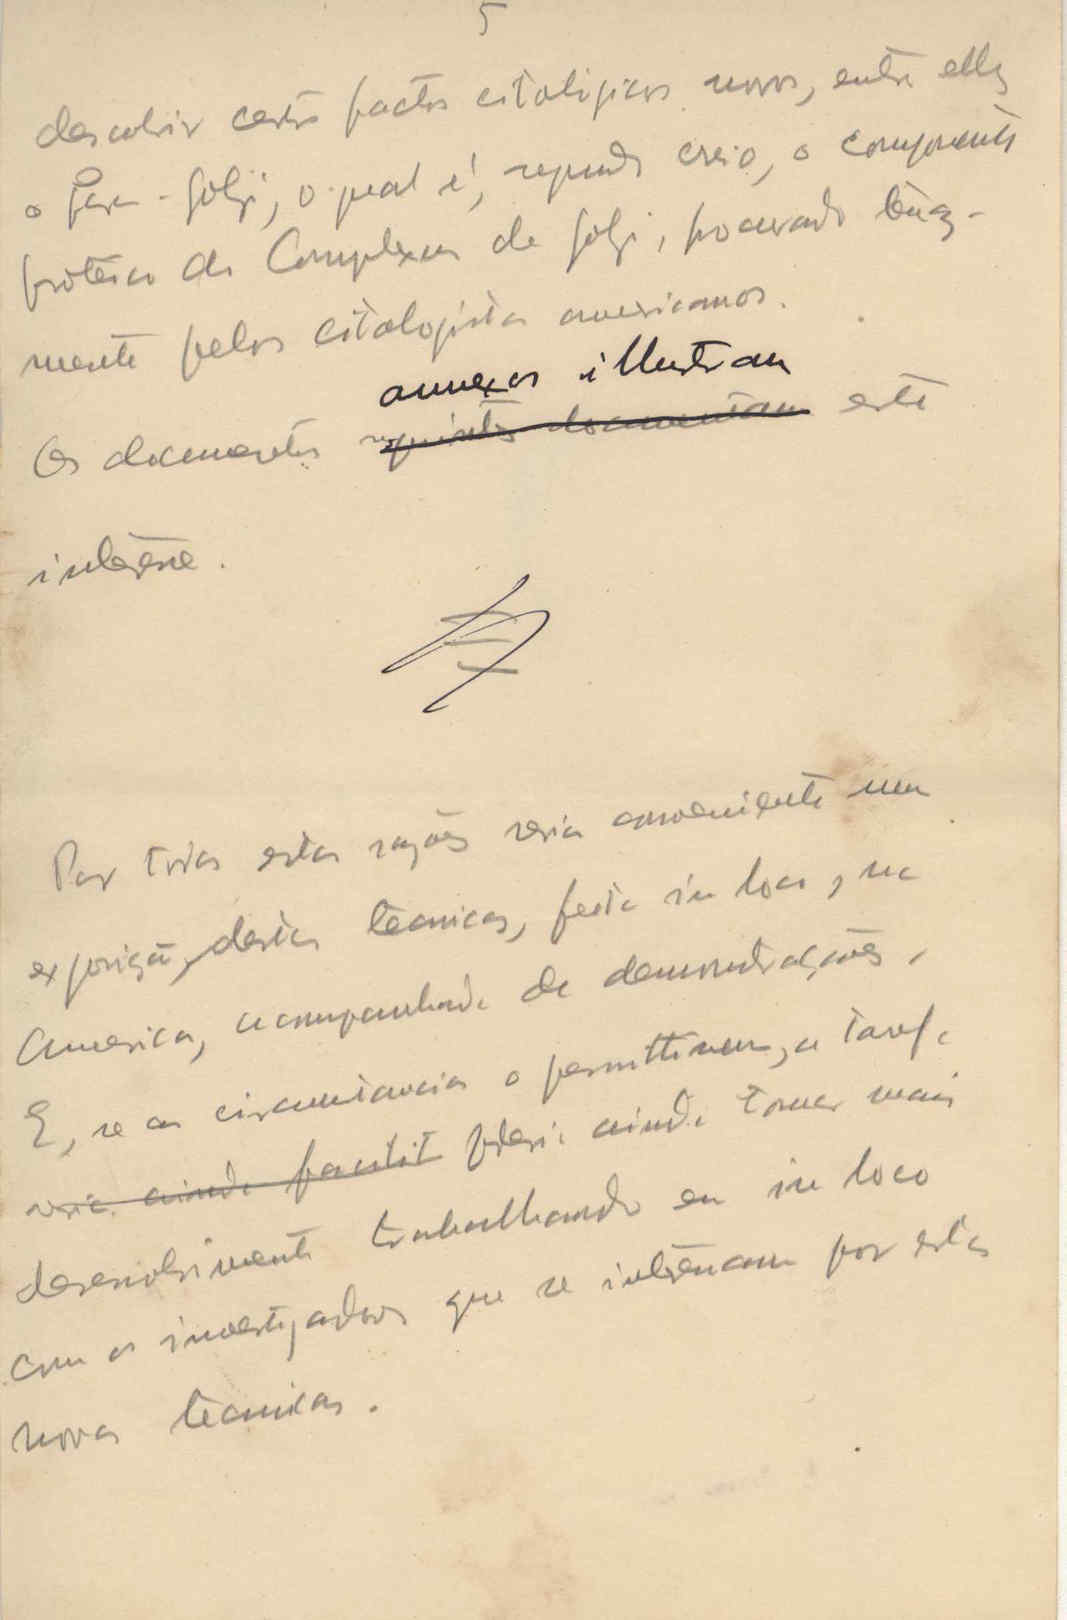 5
descobrir certos factos citologicos novos, entre elles
o para-Golgi, o qual é, segundo creio, o componente
proteico do Complexus de Golgi, procurado
mente pelos citologistas americanos.
annexos illustram
Os documentos seguintes documentam este
interesse.
Por todas estas razões seria conveniente uma
exposição, destas tecnicas, feita in loco, na
America, acompanhada de demonstrações.
E, se as circumstancias o permittirem, a tarefa
seria ainda facilit poderia ainda tomar mais
desenvolvimento trabalhando eu in loco
com os investigadores que se interessam por estas
novas tecnicas.